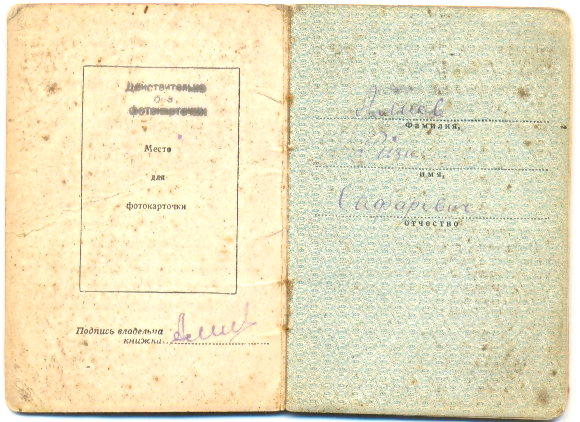 Действительно
без
фотокарточки
Место
для
фотокарточки
Подпись владельца
книжки
Фамилия,
имя,
Сафарович
отчество